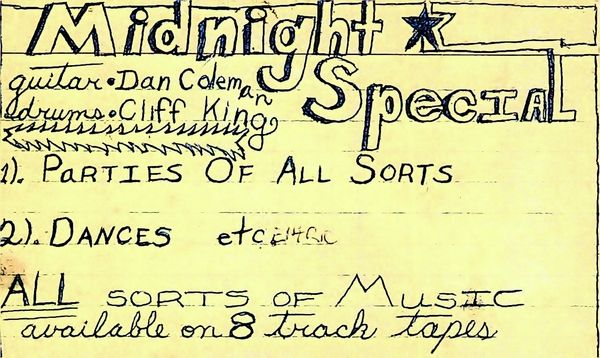 Midnight ★
Special
guitar • Dan Coleman
drums • Cliff King
1). PARTIES OF ALL SORTS
2). DANCES etc
ALL SORTS OF MUSIC
available on 8 track tapes